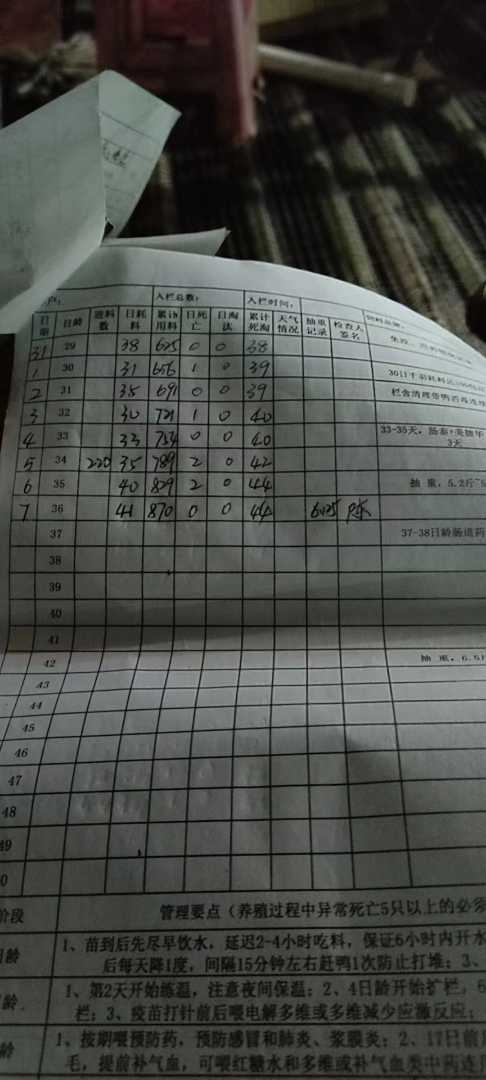 户： 入栏总数： 入栏时间：
日期 日龄 进料数 日耗料 累计用料 日死亡 日淘汰 累计死淘 天气情况 抽重记录 检查人签名
31 29 38 625 0 0 38
1 30 31 656 1 0 39
2 31 35 691 0 0 39
3 32 30 721 1 0 40 33-35天，
4 33 33 754 0 0 40 3天
5 34 220 35 789 2 0 42
6 35 40 829 2 0 44 抽 重，5.2斤
7 36 41 870 0 0 44
37 37-38日龄肠道药
38
39
40
41
42 抽 重，6.5
43
44
45
46
47
48
49
0
阶段 管理要点（养殖过程中异常死亡5只以上的必须
日龄 1、苗到后先尽早饮水，延迟2-4小时吃料，保证6小时内开水
后每天降1度，间隔15分钟左右赶鸭1次防止打堆；3、
龄 1、第2天开始练温，注意夜间保温；2、4日龄开始扩栏，6
栏；3、疫苗打针前后喂电解多维或多维减少应激反应；
龄 1、按期喂预防药，预防感冒和肺炎、浆膜炎；2、17日前
毛，提前补气血，可喂红糖水和多维或补气血类中药连